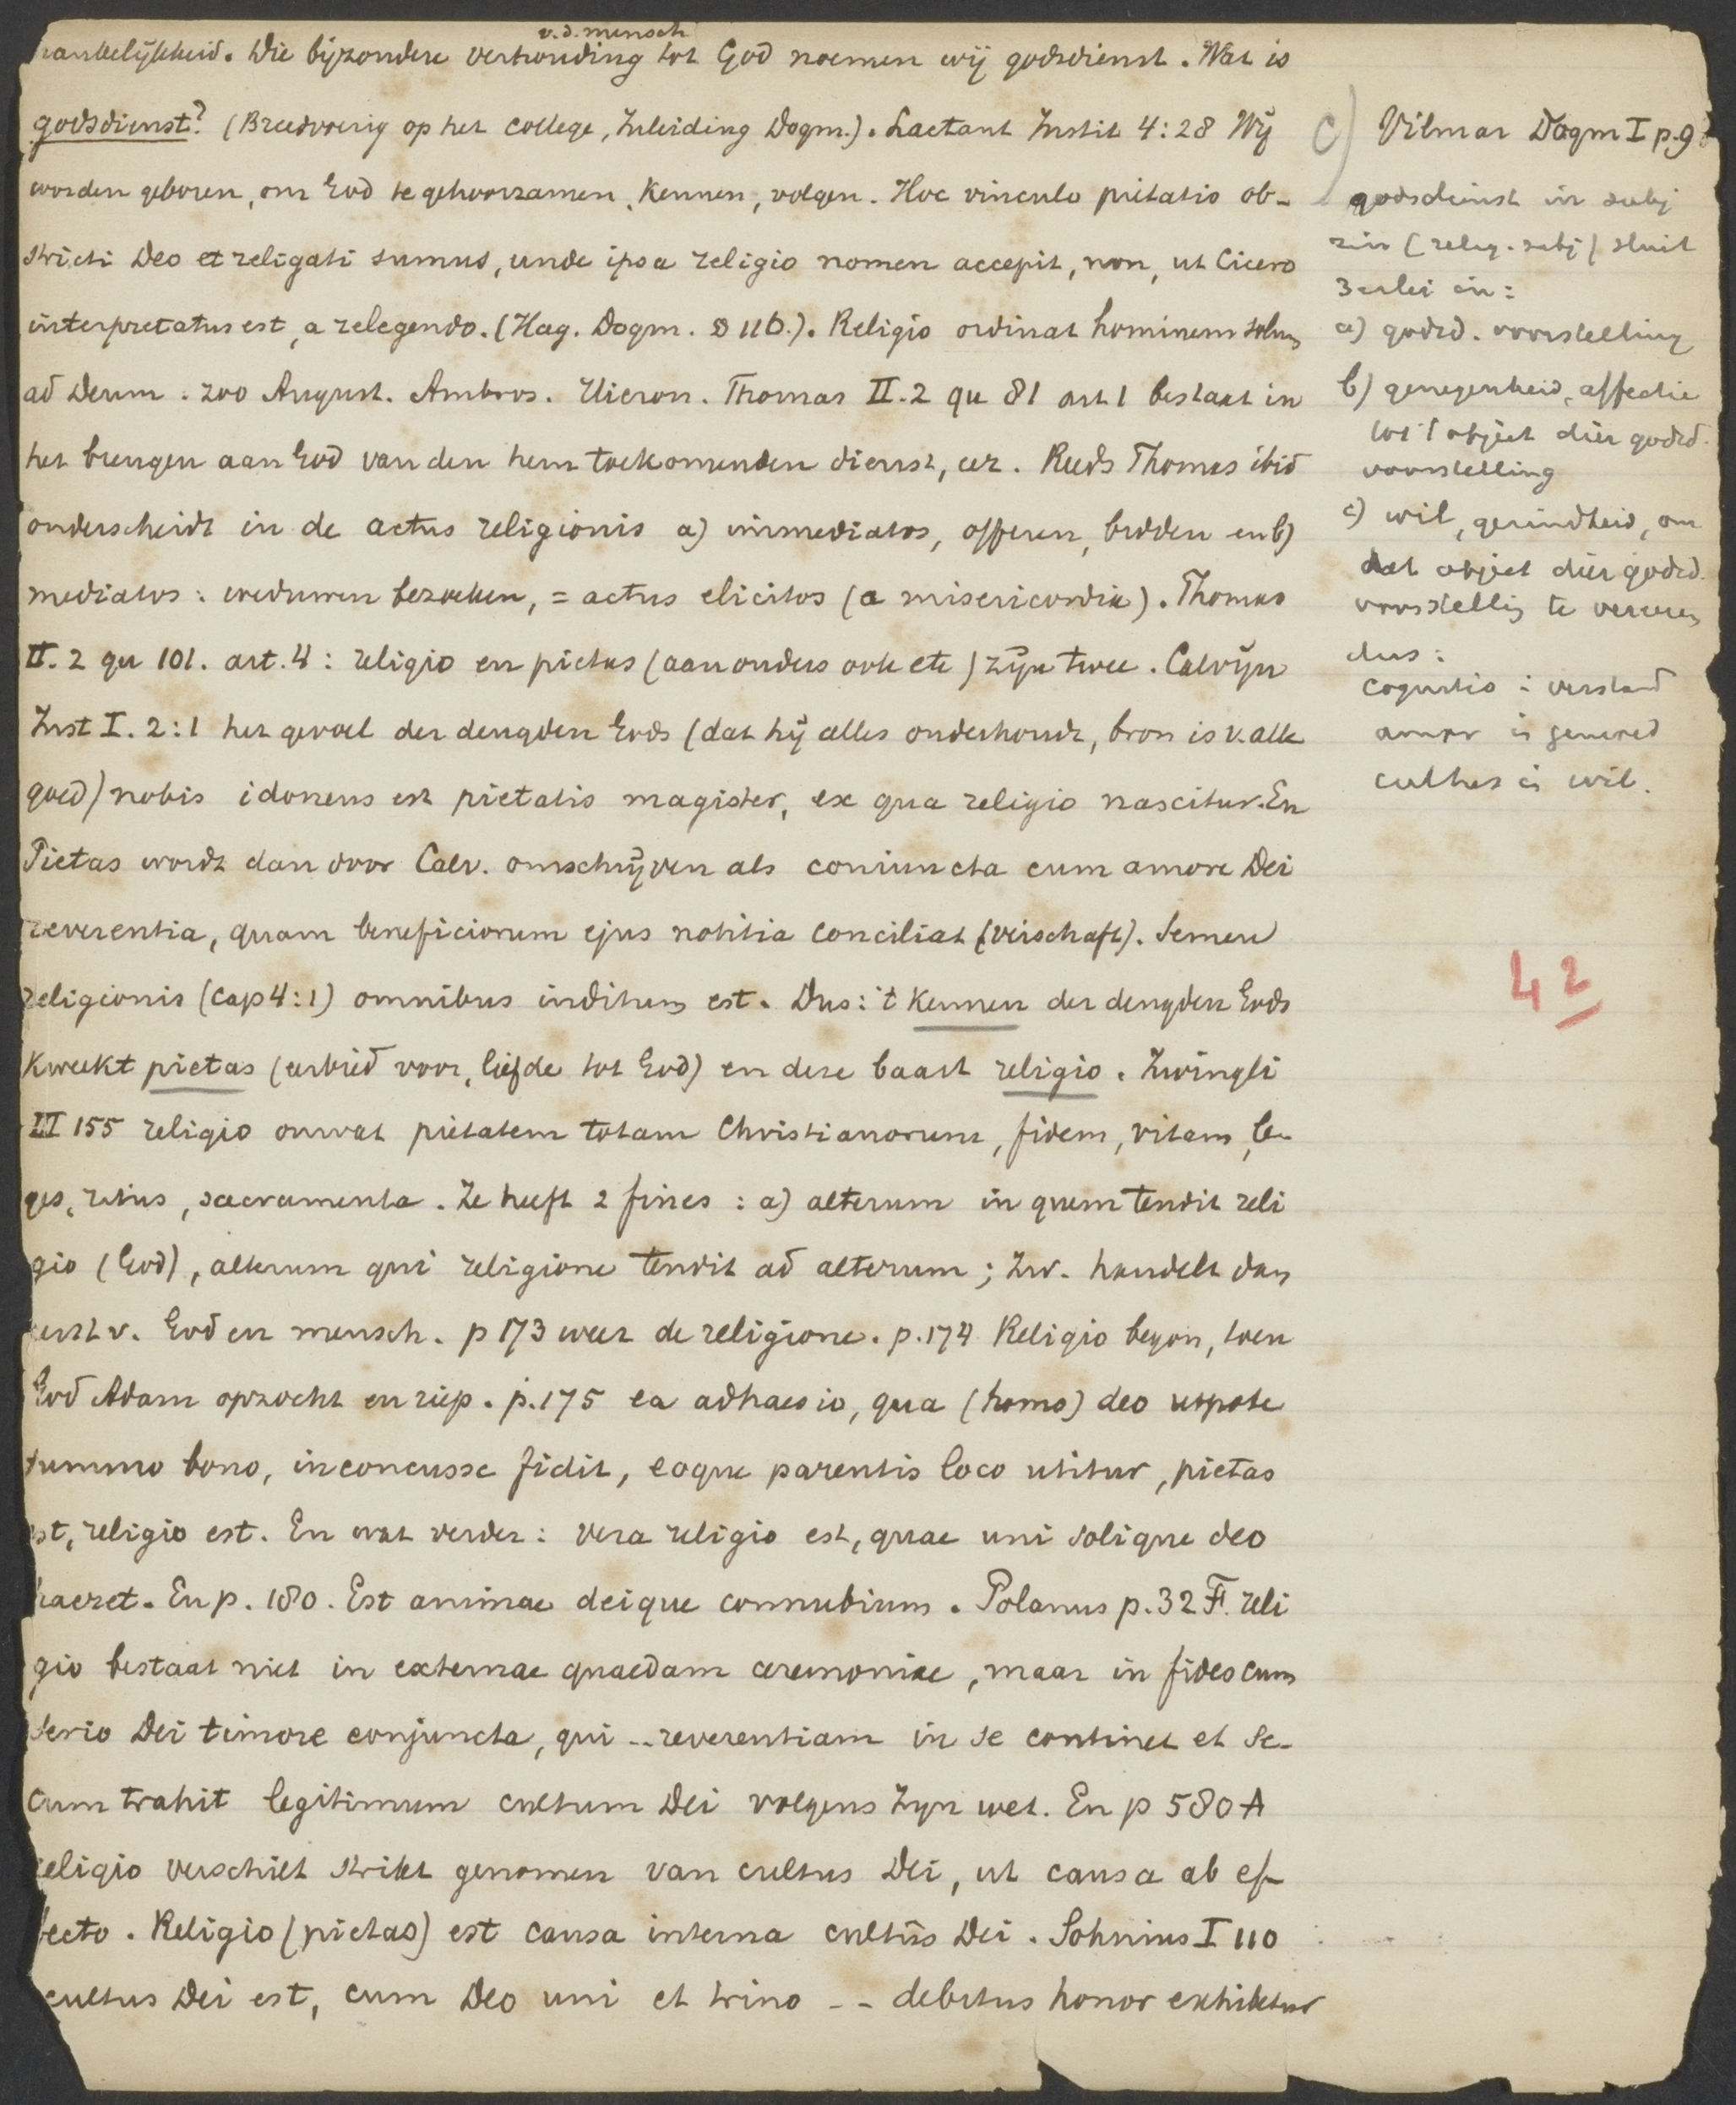 v.d. mensch
hankelijkheid. Die bijzondere verhouding tot God noemen wij godsdienst. Wat is
godsdienst? (Breedvoerig op het college, Inleiding Dogm.). Lactant Instit 4:28 Wij
worden geboren, om God te gehoorzamen, kennen, volgen. Hoc vinculo pietatis ob-
stricti Deo et religati sumus, unde ipsa religio nomen accepit, non, ut Cicero
interpretatus est, a relegendo. (Hag. Dogm. S 116.). Religio ordinat hominem solum
ad Deum. zoo August. Ambros. Hieron. Thomas II.2 qu 81 art 1 bestaat in
het brengen aan God van den hem toekomenden dienst, eer. Reeds Thomas ibid
onderscheidt in de actus religionis a) immediatos, offeren, bidden en b)
mediatos: weduwen bezoeken, = actus elicitos (a misericordia). Thomas
II.2 qu 101. art. 4: religio en pietas (aan ouders ook etc) zijn twee. Calvijn
Inst I. 2:1 het gevoel der deugden Gods (dat hij alles onderhoudt, bron is v. alle
goed) nobis idoneus est pietatis magister, ex qua religio nascitur. En
Pietas wordt dan door Calv. omschrijven als coniuncta cum amore Dei
reverentia, quam beneficiorum ejus notitia conciliat (verschaft). Semen
religionis (cap 4:1) omnibus inditum est. Dus: 't kennen der deugden Gods
kweekt pietas (eerbied voor, liefde tot God) en deze baart religio. Zwingli
III 155 religio omvat pietatem totam Christianorum, fidem, vitam, le-
ges, ritus, sacramenta. Ze heeft 2 fines: a) alterum in quem tendit reli
gio (God), alterum qui religione tendit ad alterum; Zw. handelt dan
eerst v. God en mensch. p 173 weer de religione. p. 174 Religio begon, toen
God Adam opzocht en riep. p. 175 ea adhaesio, qua (homo) deo utpote
summo bono, inconcusse fidit, eoque parentis loco utitur, pietas
est, religio est. En wat verder: vera religio est, quae uni solique deo
haeret. En p. 180. Est animae deique connubium. Polanus p. 32 F. reli
gio bestaat niet in externae quaedam ceremoniae, maar in fides cum
serio Dei timore conjuncta, qui -- reverentiam in se continet et se-
cum trahit legitimum cultum Dei volgens Zijn wet. En p 580 A
religio verschilt strikt genomen van cultus Dei, ut causa ab ef-
fecto. Religio (pietas) est causa interna cultûs Dei. Sohnius I 110
cultus Dei est, cum Deo uni et trino -- debitus honor exhibetur
c) Vilmar Dogm I p. 9
godsdienst in subj
zin (relig. subj) sluit
3 erlei in:
a) godsd. voorstelling
b) genegenheid, affectie
tot 't object dier godsd.
voorstelling
c) wil, gezindheid, om
dat object dier godsd.
voorstellig te vereren
dus:
cognitio: verstand
amor is gemoed
cultus is wil.
42